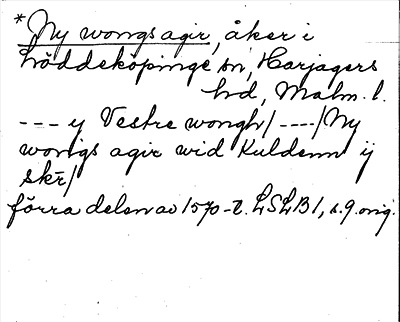 * Ny wongs agir, åker i
Löddeköpinge sn, Harjagers
hd, Malm. l.
--- y Vestre wongh/ ----/Ny
wongs agir wid Kuldenn ij
skr/
förra delen av 1570-t. LSLB 1, s. 9. orig.